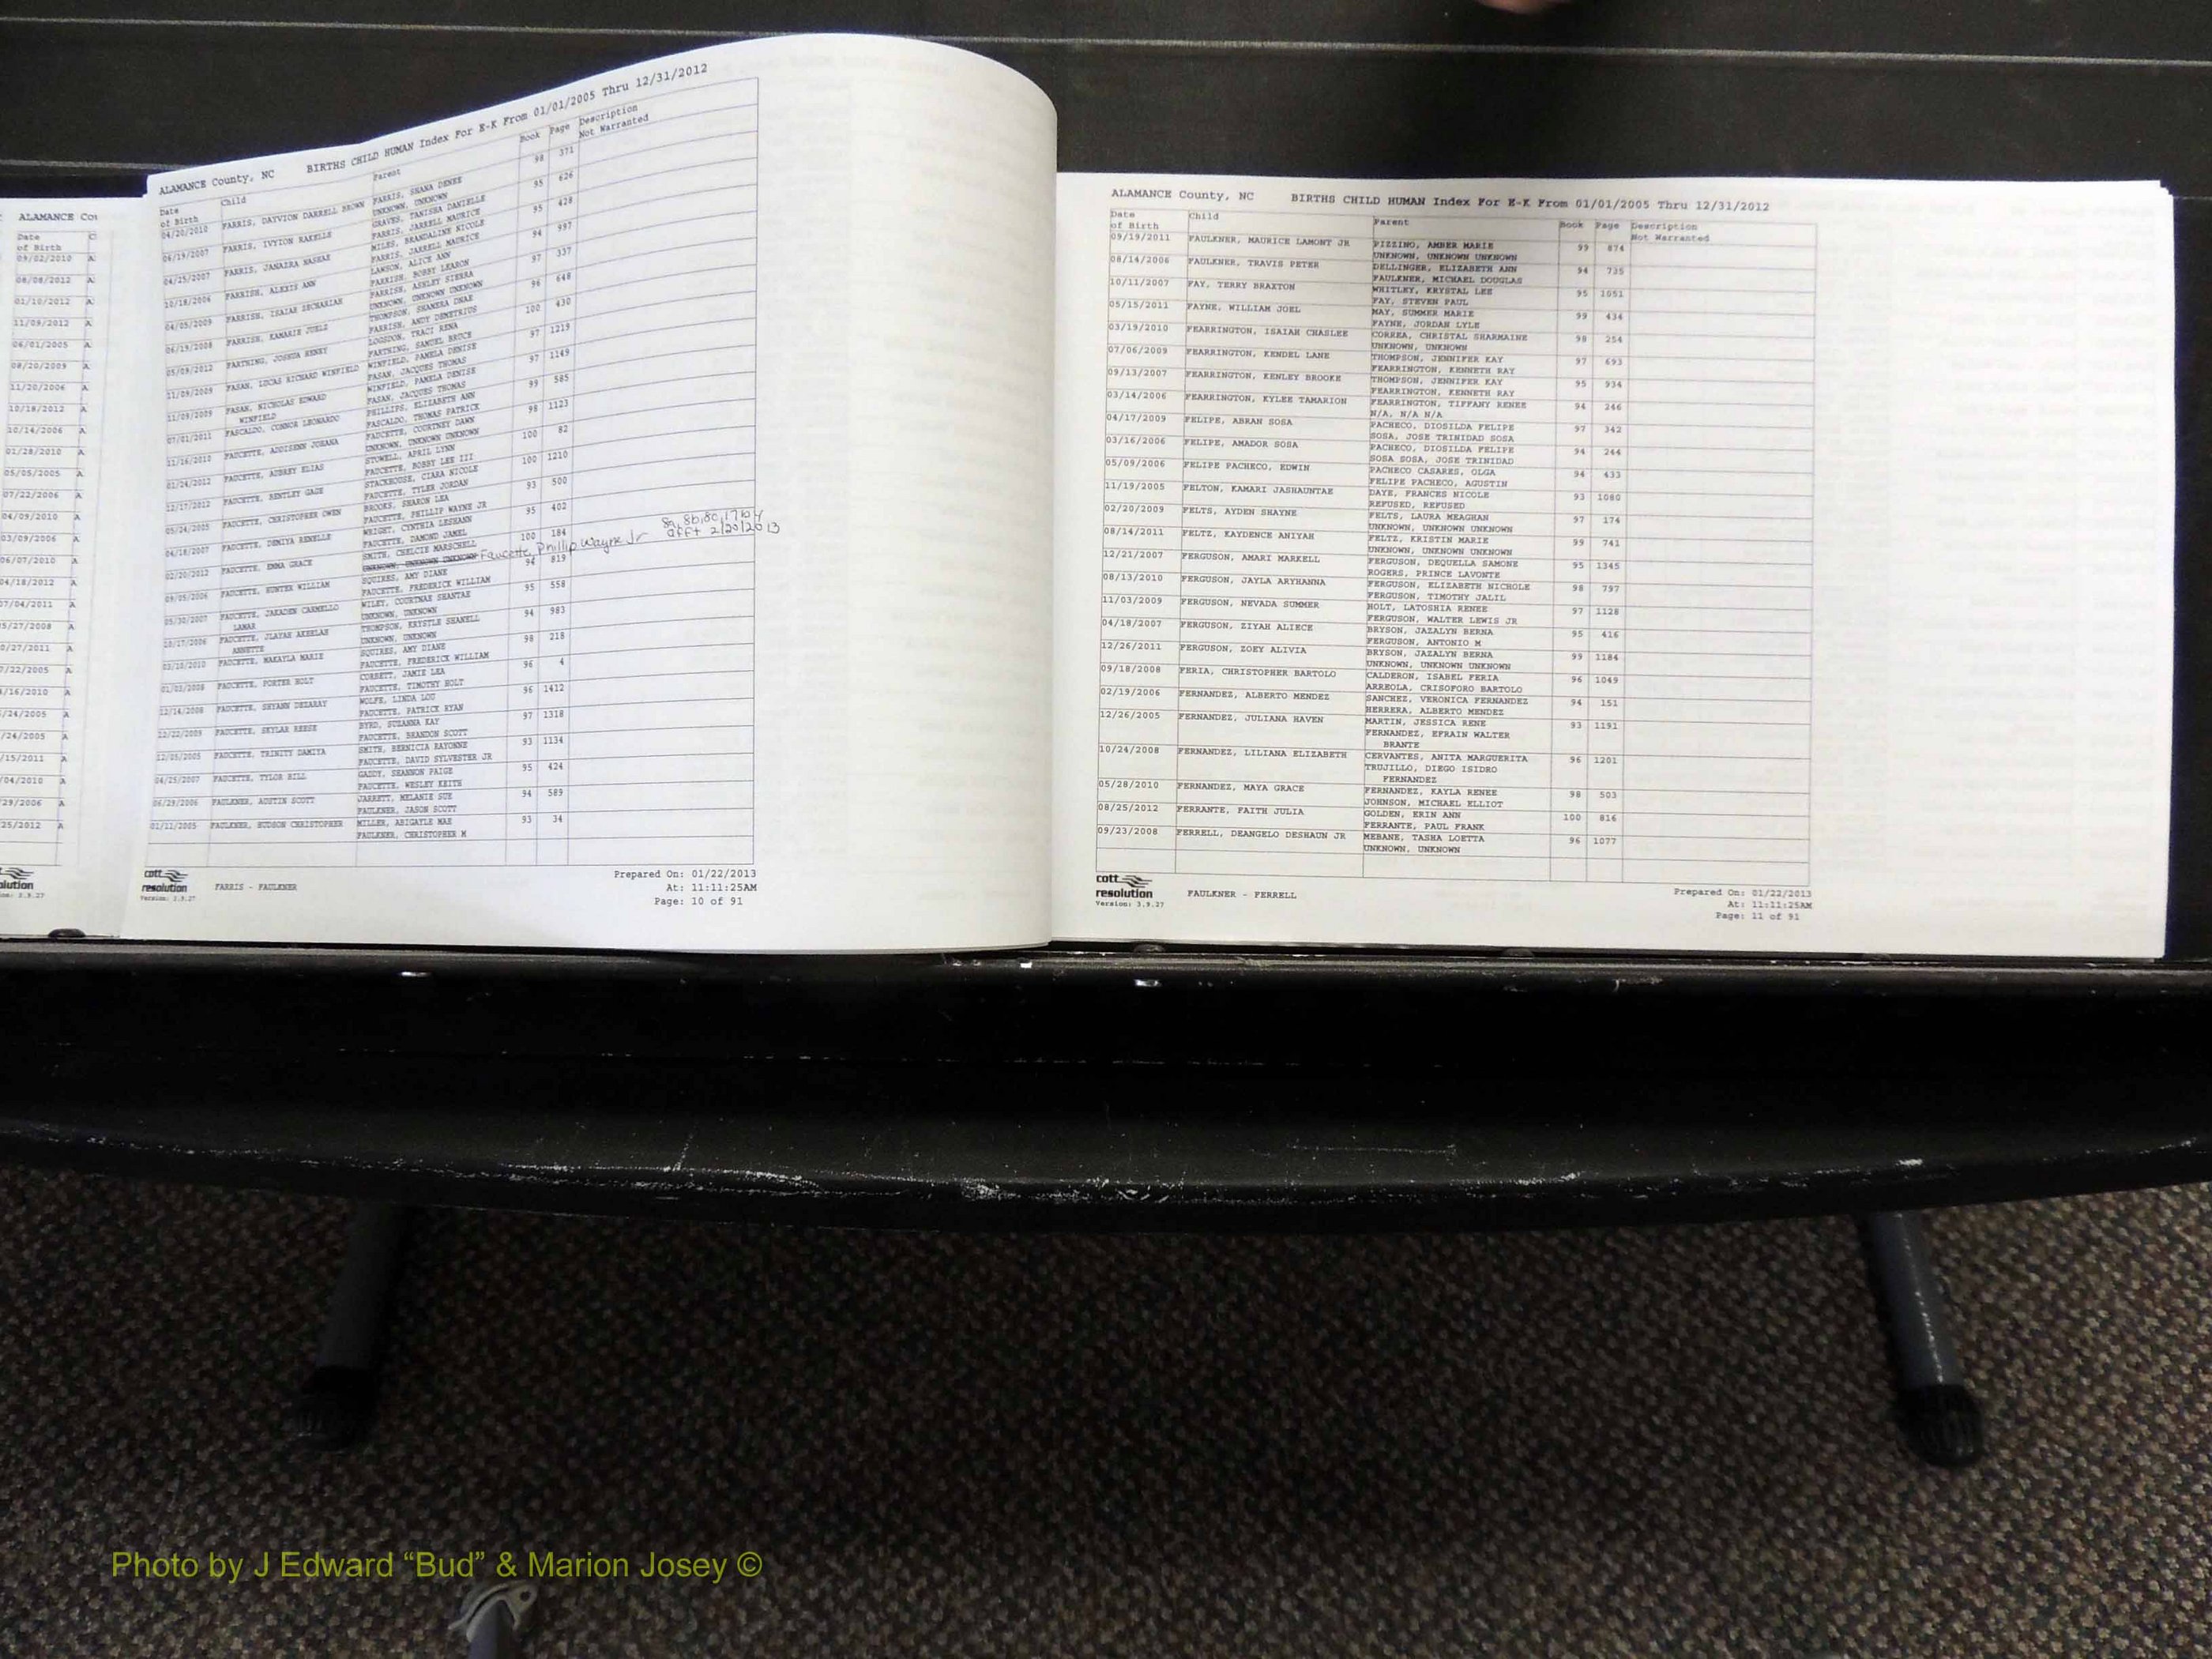 ALAMANCE Cou
Date C
of Birth
09/02/2010 A
08/08/2012 A
01/10/2012 A
11/09/2012 A
06/01/2005 A
08/20/2009 A
11/20/2006 A
10/18/2012 A
10/14/2006 A
01/28/2010 A
05/05/2005 A
07/22/2006 A
04/09/2010 A
03/09/2006 A
06/07/2010 A
04/18/2012 A
07/04/2011 A
5/27/2008 A
0/27/2011 A
/22/2005 A
/16/2010 A
/24/2005 A
/24/2005 A
/15/2011 A
/04/2010 A
29/2006 A
25/2012 A
ALAMANCE County, NC BIRTHS CHILD HUMAN Index For E-K From 01/01/2005 Thru 12/31/2012
Date Child Parent Book Page Description
of Birth Not Warranted
04/20/2010 FARRIS, DAYVION DARRELL BROWN FARRIS, SHANA DENEE 98 371
UNKNOWN, UNKNOWN
06/19/2007 FARRIS, IVYION RAKELLE GRAVES, TANISHA DANIELLE 95 626
FARRIS, JARRELL MAURICE
04/25/2007 FARRIS, JANAIRA NASHAE MILES, BRANDALINE NICOLE 95 428
FARRIS, JARRELL MAURICE
10/18/2006 FARRISH, ALEXIS ANN LAWSON, ALICE ANN 94 997
FARRISH, BOBBY LEARON
04/05/2009 FARRISH, ISAIAH ZECHARIAH FARRISH, ASHLEY SIERRA 97 337
UNKNOWN, UNKNOWN UNKNOWN
06/19/2008 FARRISH, KAMARIE JUELZ THOMPSON, SHAMERA DNAE 96 648
FARRISH, ANDY DEMETRIUS
05/09/2012 FARTHING, JOSHUA HENRY LOGSDON, TRACI RENA 100 430
FARTHING, SAMUEL BRUCE
11/09/2009 FASAN, LUCAS RICHARD WINFIELD WINFIELD, PAMELA DENISE 97 1219
FASAN, JACQUES THOMAS
11/09/2009 FASAN, NICHOLAS EDWARD WINFIELD, PAMELA DENISE 97 1149
WINFIELD FASAN, JACQUES THOMAS
07/01/2011 FASCALDO, CONNOR LEONARDO PHILLIPS, ELIZABETH ANN 99 585
FASCALDO, THOMAS PATRICK
11/16/2010 FAUCETTE, ADDISENN JOHANA FAUCETTE, COURTNEY DAWN 98 1123
UNKNOWN, UNKNOWN UNKNOWN
01/24/2012 FAUCETTE, AUBREY ELIAS STOWELL, APRIL LYNN 100 82
FAUCETTE, BOBBY LEE III
12/17/2012 FAUCETTE, BENTLEY GAGE STACKHOUSE, CIARA NICOLE 100 1210
FAUCETTE, TYLER JORDAN
05/24/2005 FAUCETTE, CHRISTOPHER OWEN BROOKS, SHARON LEA 93 500
FAUCETTE, PHILLIP WAYNE JR
04/18/2007 FAUCETTE, DEMIYA RENELLE WRIGHT, CYNTHIA LESHANN 95 402
FAUCETTE, DAMOND JAMEL
02/20/2012 FAUCETTE, EMMA GRACE SMITH, CHELCIE MARSCHELL 100 184 8a, 8b, 8c, 17b4
UNKNOWN, UNKNOWN UNKNOWN Faucette, Phillip Wayne Jr aff+ 2/20/2013
09/05/2006 FAUCETTE, HUNTER WILLIAM SQUIRES, AMY DIANE 94 819
FAUCETTE, FREDERICK WILLIAM
05/30/2007 FAUCETTE, JARADEN CARMELLO WILEY, COURTNAE SHANTAE 95 558
LAMAR UNKNOWN, UNKNOWN
10/17/2006 FAUCETTE, JLAYAH AKEELAH THOMPSON, KRYSTLE SHANELL 94 983
ANNETTE UNKNOWN, UNKNOWN
03/10/2010 FAUCETTE, MAKAYLA MARIE SQUIRES, AMY DIANE 98 218
FAUCETTE, FREDERICK WILLIAM
01/02/2008 FAUCETTE, PORTER HOLT CORBETT, JAMIE LEA 96 4
FAUCETTE, TIMOTHY HOLT
12/14/2008 FAUCETTE, SHYANN DEZARAY WOLFE, LINDA LOU 96 1412
FAUCETTE, PATRICK RYAN
12/22/2009 FAUCETTE, SKYLAR REESE BYRD, SUZANNA KAY 97 1318
FAUCETTE, BRANDON SCOTT
12/05/2005 FAUCETTE, TRINITY DAMIYA SMITH, BERNICIA RAYONNE 93 1134
FAUCETTE, DAVID SYLVESTER JR
04/25/2007 FAUCETTE, TYLOR HILL GADDY, SHANNON PAIGE 95 424
FAUCETTE, WESLEY KEITH
06/29/2006 FAULKNER, AUSTIN SCOTT JARRETT, MELANIE SUE 94 589
FAULKNER, JASON SCOTT
01/11/2005 FAULKNER, HUDSON CHRISTOPHER MILLER, ABIGAYLE MAE 93 34
FAULKNER, CHRISTOPHER M
cott
resolution FARRIS - FAULKNER
Version: 3.9.27
Prepared On: 01/22/2013
At: 11:11:25AM
Page: 10 of 91
ALAMANCE County, NC BIRTHS CHILD HUMAN Index For E-K From 01/01/2005 Thru 12/31/2012
Date Child Parent Book Page Description
of Birth Not Warranted
09/19/2011 FAULKNER, MAURICE LAMONT JR PIZZINO, AMBER MARIE 99 874
UNKNOWN, UNKNOWN UNKNOWN
08/14/2006 FAULKNER, TRAVIS PETER DELLINGER, ELIZABETH ANN 94 735
FAULKNER, MICHAEL DOUGLAS
10/11/2007 FAY, TERRY BRAXTON WHITLEY, KRYSTAL LEE 95 1051
FAY, STEVEN PAUL
05/15/2011 FAYNE, WILLIAM JOEL MAY, SUMMER MARIE 99 434
FAYNE, JORDAN LYLE
03/19/2010 FEARRINGTON, ISAIAH CHASLEE CORREA, CHRISTAL SHARMAINE 98 254
UNKNOWN, UNKNOWN
07/06/2009 FEARRINGTON, KENDEL LANE THOMPSON, JENNIFER KAY 97 693
FEARRINGTON, KENNETH RAY
09/13/2007 FEARRINGTON, KENLEY BROOKE THOMPSON, JENNIFER KAY 95 934
FEARRINGTON, KENNETH RAY
03/14/2006 FEARRINGTON, KYLEE TAMARION FEARRINGTON, TIFFANY RENEE 94 246
N/A, N/A N/A
04/17/2009 FELIPE, ABRAN SOSA PACHECO, DIOSILDA FELIPE 97 342
SOSA, JOSE TRINIDAD SOSA
03/16/2006 FELIPE, AMADOR SOSA PACHECO, DIOSILDA FELIPE 94 244
SOSA SOSA, JOSE TRINIDAD
05/09/2006 FELIPE PACHECO, EDWIN PACHECO CASARES, OLGA 94 433
FELIPE PACHECO, AGUSTIN
11/19/2005 FELTON, KAMARI JASHAUNTAE DAYE, FRANCES NICOLE 93 1080
REFUSED, REFUSED
02/20/2009 FELTS, AYDEN SHAYNE FELTS, LAURA MEAGHAN 97 174
UNKNOWN, UNKNOWN UNKNOWN
08/14/2011 FELTZ, KAYDENCE ANIYAH FELTZ, KRISTIN MARIE 99 741
UNKNOWN, UNKNOWN UNKNOWN
12/21/2007 FERGUSON, AMARI MARKELL FERGUSON, DEQUELLA SAMONE 95 1345
ROGERS, PRINCE LAVONTE
08/13/2010 FERGUSON, JAYLA ARYHANNA FERGUSON, ELIZABETH NICHOLE 98 797
FERGUSON, TIMOTHY JALIL
11/03/2009 FERGUSON, NEVADA SUMMER HOLT, LATOSHIA RENEE 97 1128
FERGUSON, WALTER LEWIS JR
04/18/2007 FERGUSON, ZIYAH ALIECE BRYSON, JAZALYN BERNA 95 416
FERGUSON, ANTONIO M
12/26/2011 FERGUSON, ZOEY ALIVIA BRYSON, JAZALYN BERNA 99 1184
UNKNOWN, UNKNOWN UNKNOWN
09/18/2008 FERIA, CHRISTOPHER BARTOLO CALDERON, ISABEL FERIA 96 1049
ARREOLA, CRISOFORO BARTOLO
02/19/2006 FERNANDEZ, ALBERTO MENDEZ SANCHEZ, VERONICA FERNANDEZ 94 151
HERRERA, ALBERTO MENDEZ
12/26/2005 FERNANDEZ, JULIANA HAVEN MARTIN, JESSICA RENE 93 1191
FERNANDEZ, EFRAIN WALTER
BRANTE
10/24/2008 FERNANDEZ, LILIANA ELIZABETH CERVANTES, ANITA MARGUERITA 96 1201
TRUJILLO, DIEGO ISIDRO
FERNANDEZ
05/28/2010 FERNANDEZ, MAYA GRACE FERNANDEZ, KAYLA RENEE 98 503
JOHNSON, MICHAEL ELLIOT
08/25/2012 FERRANTE, FAITH JULIA GOLDEN, ERIN ANN 100 816
FERRANTE, PAUL FRANK
09/23/2008 FERRELL, DEANGELO DESHAUN JR MEBANE, TASHA LOETTA 96 1077
UNKNOWN, UNKNOWN
cott
resolution FAULKNER - FERRELL
Version: 3.9.27
Prepared On: 01/22/2013
At: 11:11:25AM
Page: 11 of 91
Photo by J Edward “Bud” & Marion Josey ©